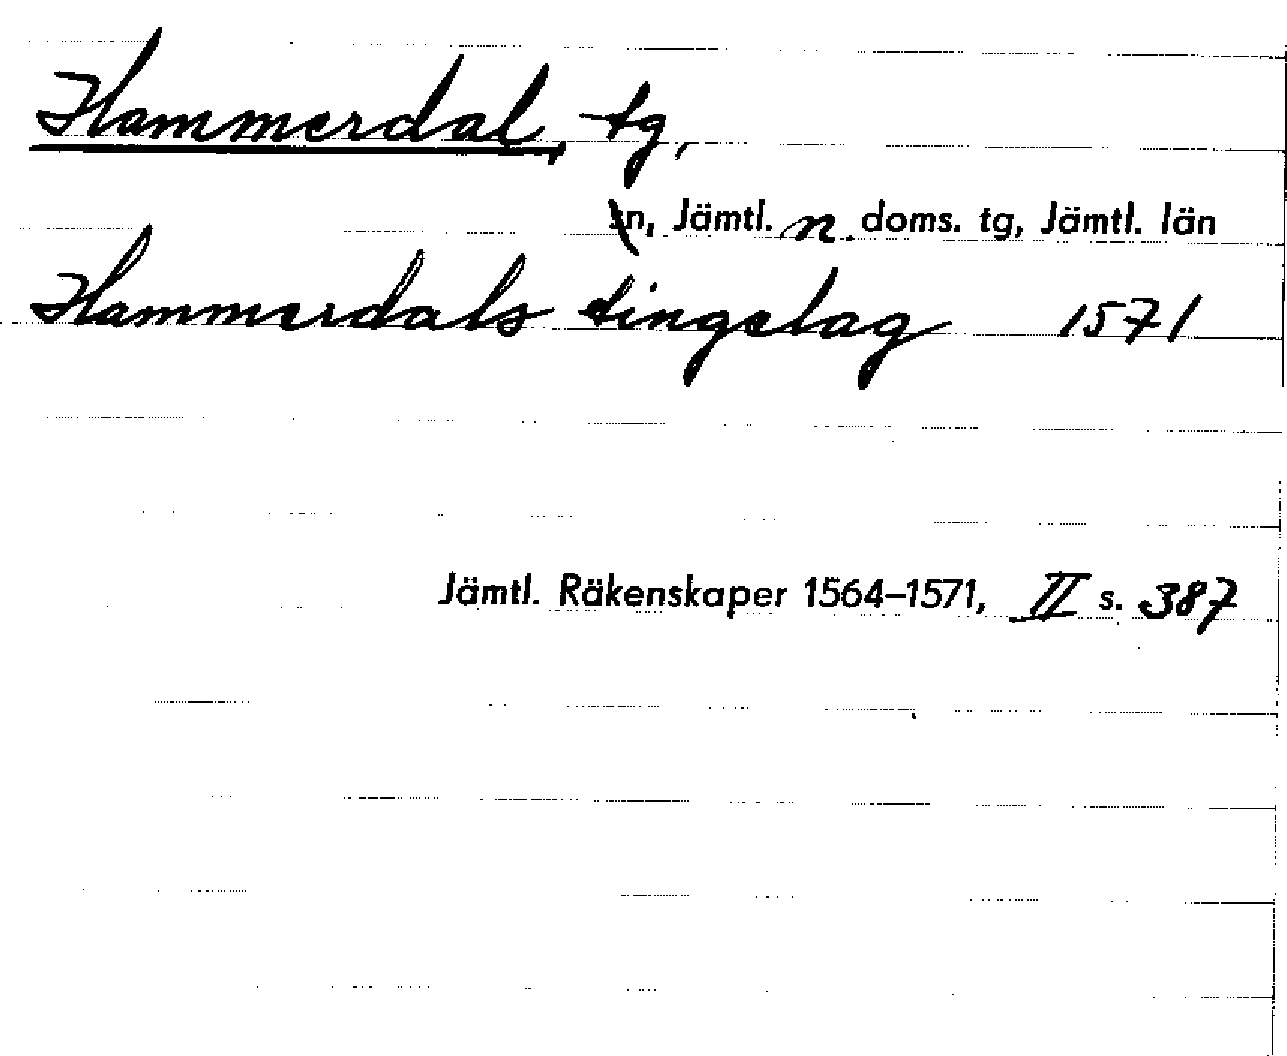 Hammerdal, tg,
sn, Jämtl. n. doms. tg, Jämtl. län
Hammerdals tingelag 1571
Jämtl. Räkenskaper 1564–1571, II s. 387